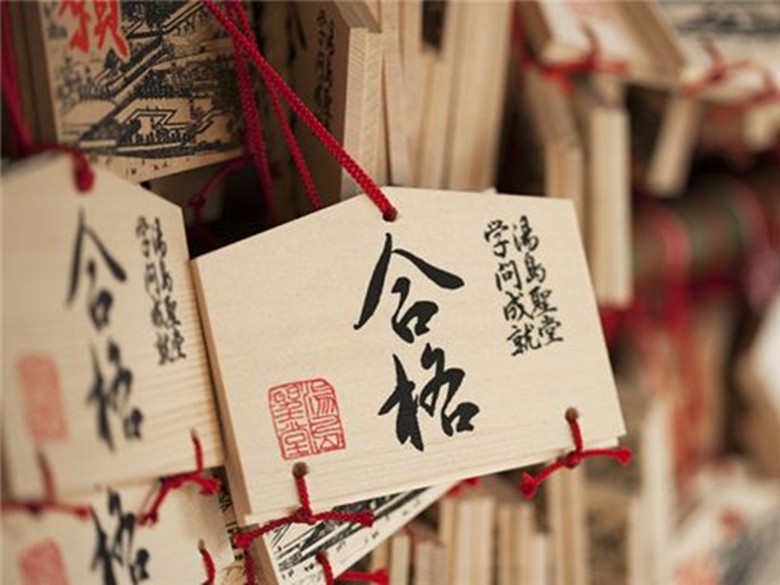 湯島聖堂
学問成就
合格
湯島
聖堂
湯島聖堂
学問成就
合格
願
格